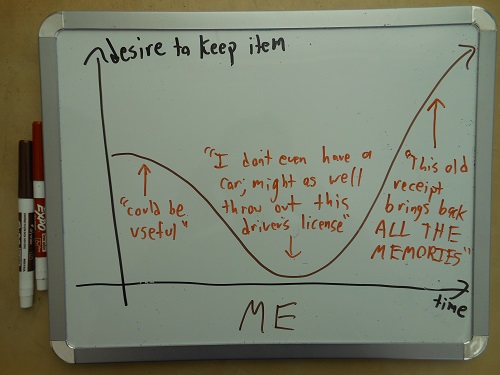 desire to keep item
"could be
useful"
"I don't even have a
car; might as well
throw out this
driver's license"
"This old
receipt
brings back
ALL THE
MEMORIES"
time
ME
EXPO
EXPO